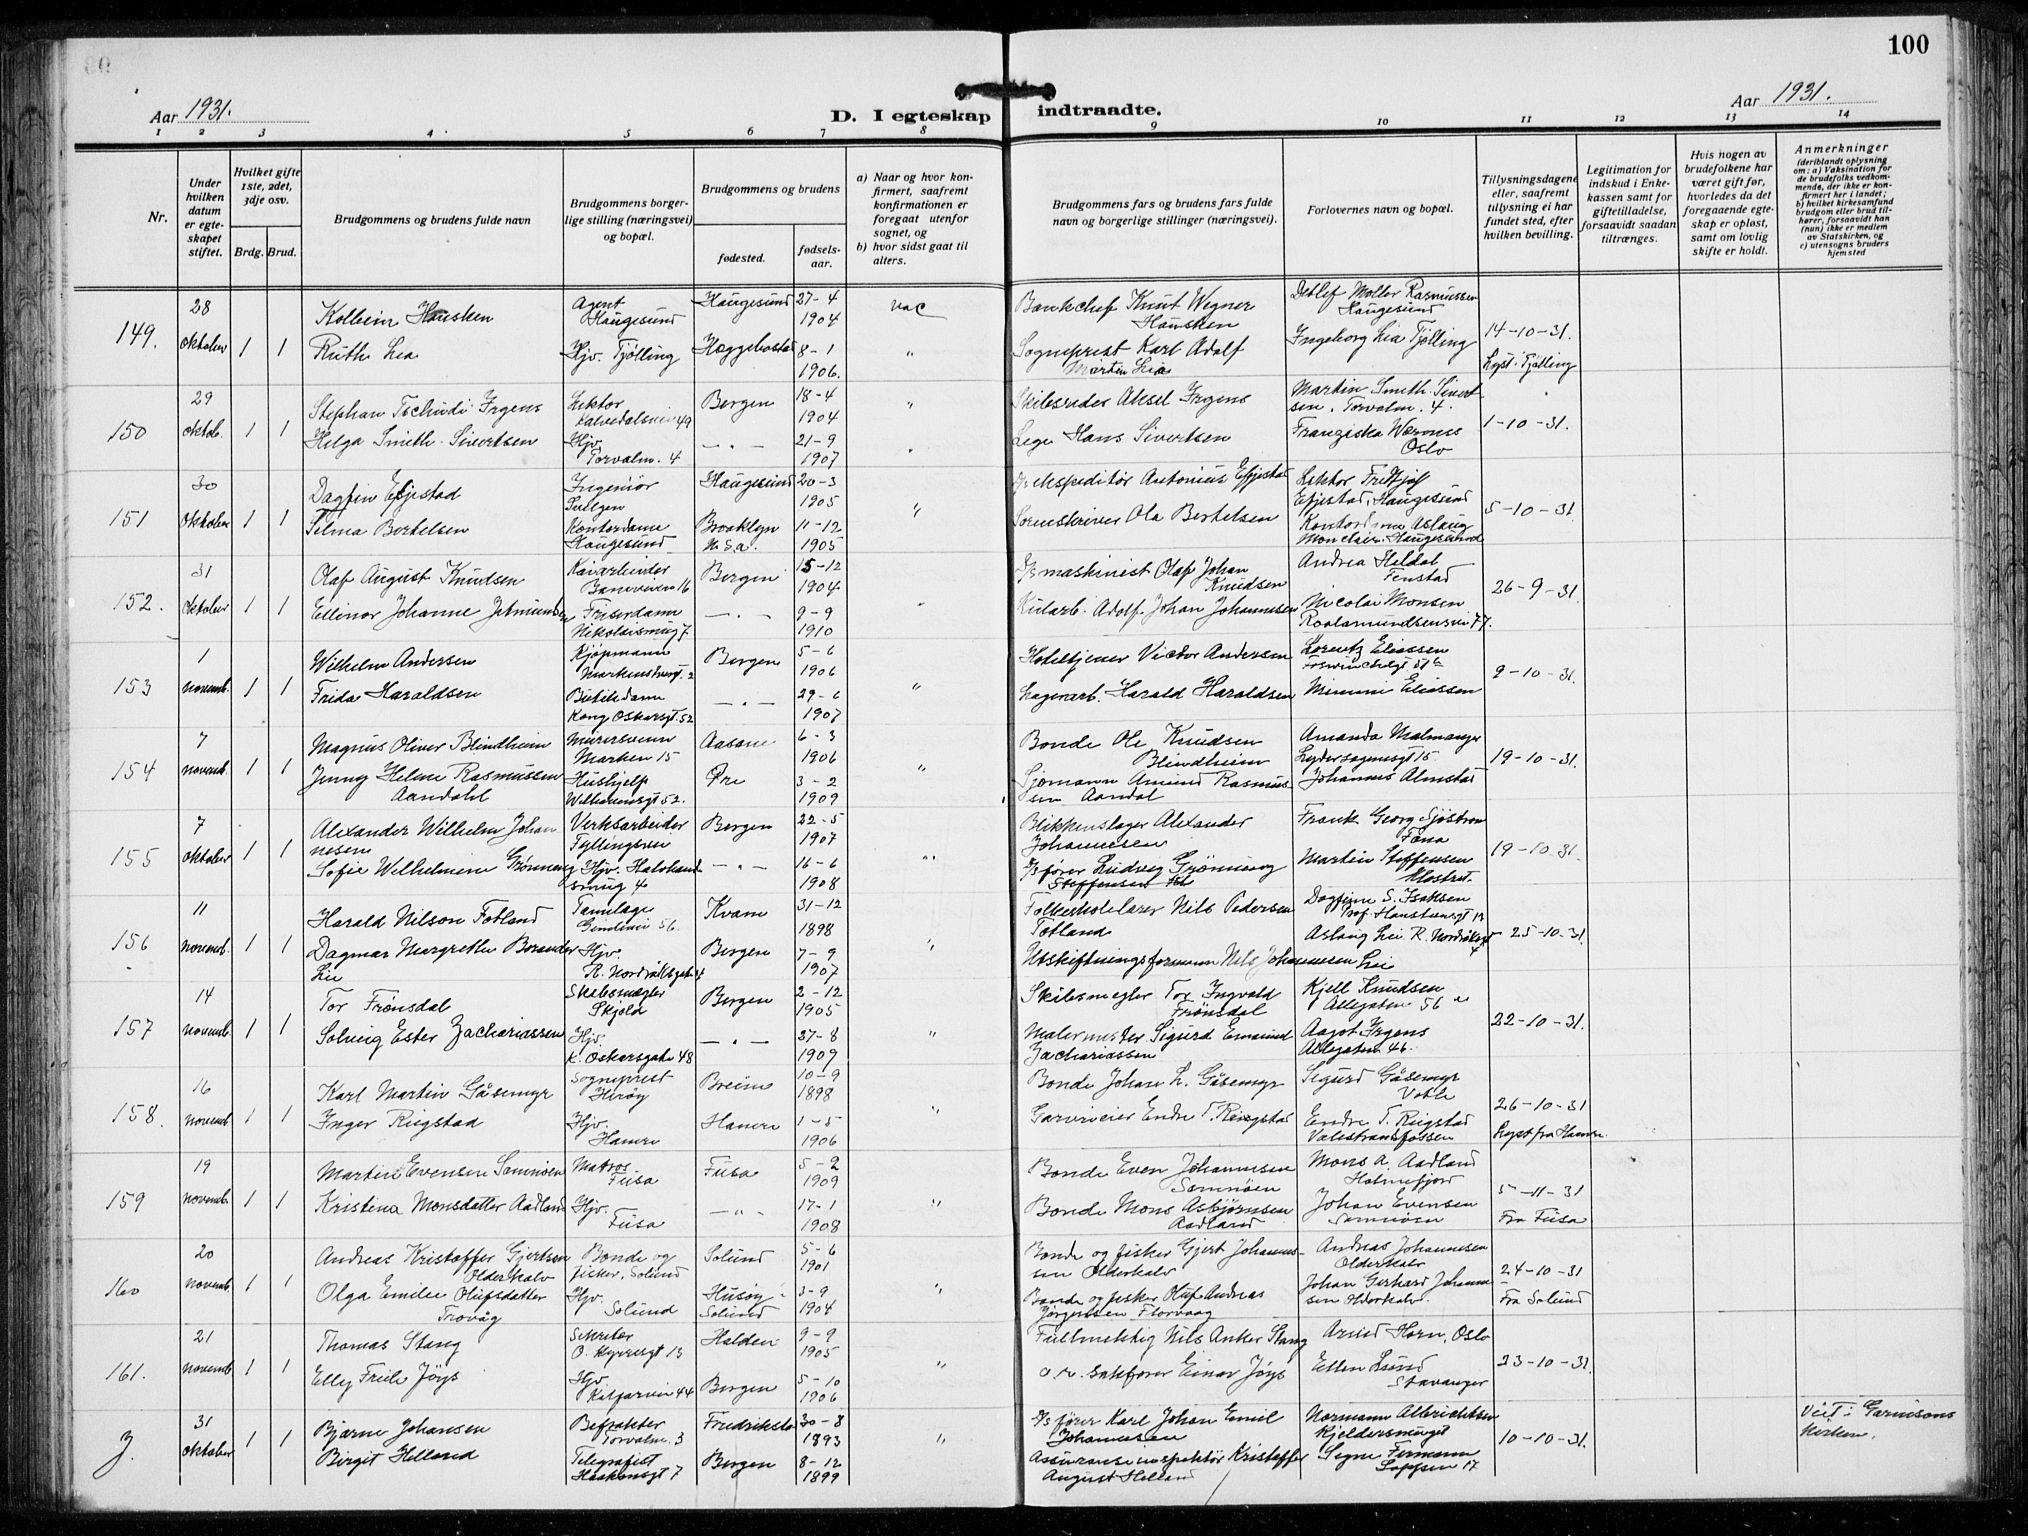 100
Aar 1931.
D. I egteskap indtraadte.
Aar 1931.
1 2 3 4 5 6 7 8 9 10 11 12 13 14
Nr.
Under hvilken datum er egteskapet stiftet.
Hvilket gifte 1ste, 2det, 3dje osv.
Brdg. Brud.
Brudgommens og brudens fulde navn
Brudgommens borgerlige stilling (næringsvei) og bopæl.
Brudgommens og brudens
fødested.
fødselsaar.
a) Naar og hvor konfirmert, saafremt konfirmationen er foregaat utenfor sognet, og
b) hvor sidst gaat til alters.
Brudgommens fars og brudens fars fulde navn og borgerlige stillinger (næringsvei).
Forlovernes navn og bopæl.
Tillysningsdagene eller, saafremt tillysning ei har fundet sted, efter hvilken bevilling.
Legitimation for indskud i Enkekassen samt for giftetilladelse, forsaavidt saadan tiltrænges.
Hvis nogen av brudefolkene har været gift før, hvorledes da det foregaaende egteskap er opløst, samt om lovlig skifte er holdt.
Anmerkninger (deriblandt oplysning om: a) Vaksination for de brudefolks vedkommende, der ikke er konfirmert her i landet; b) hvilket kirkesamfund brudgom eller brud tilhører, forsaavidt han (hun) ikke er medlem av Statskirken, og c) utensogns bruders hjemsted
149. 28 oktober 1 1
Kolbein Hausken Agent Haugesund Haugesund 27-4 1904 vac Bankchef Knut Wegner Hausken Detlef Møller Rasmussen Haugesund
Ruth Lia Hjv. Tjølling Hæggebostad 8-1 1906. " Sogneprest Karl Adolf Martin Lia Ingeborg Lia Tjølling 14-10-31. Lyst i Tjølling
150 29 oktob. 1 1
Stephan Tschudi Irgens Lektor Kalvedalsvei 49 Bergen 18-4 1904 " Skibsreder Aksel Irgens Martin Smith-Sivertsen, Torvalm. 4.
Helga Smith-Sivertsen Hjv. Torvalm. 4 — " — 21-9 1907 " Lege Hans Sivertsen Franziska Oslo 1-10-31.
151 30 oktober 1 1
Dagfin Efjestad Ingeniør Haugesund 20-3 1905 ekspeditør Antonius Efjestad Lektor Fridtjof Efjestad, Haugesund
Selma Bertelsen Kontordame Haugesund Brooklyn U.S.a. 11-12 1905 " Sorenskriver Ola Bertelsen Kontordame Aslaug Haugesund 5-10-31.
152. 31 oktober 1 1
Olaf August Knudsen Kaiarbeider 16 Bergen 15-12 1904 D/s maskinist Olaf Johan Knudsen Andrea Heldal Fenstad
Ellinor Johanne Frisørdame Nikolaismug 7 — " — 9-9 1910 " Kularb. Adolf Johan Johannesen Nicolai Monsen Roalamundsensvei 77. 26-9-31.
153 1 novemb. 1 1
Wilhelm Andersen Kjøpmann 2 Bergen 5-6 1906 Hoteltjener Victor Andersen Lorentz Eliassen
Frida Haraldsen Butikdame Kong Oskarsgt. 52 — " — 29-6 1907 " Lagerarb. Harald Haraldsen Eliassen 9-10-31.
154 7 novemb. 1 1
Magnus Oliver Blindheim Murersvenn Marken 15 Aasane 6-3 1906 Bonde Ole Knudsen Blindheim Amanda Malmanger Lydersagensgt 15
Jenny Helene Rasmussen Aandahl Hushjelp Wilhelmsgt 52. Øre 3-2 1909 " Sjømann Amund Rasmussen Aandal Johannes Almestad 19-10-31.
155 7 oktober 1 1
Alexander Wilhelm Johannesen Verksarbeider Fyllingsvei Bergen 22-5 1907 Blikkenslager Alexander Johannesen Frank Georg Sjöstrøm Fana
Sofie Wilhelmine Grønneng Hjv. 40 — " — 16-6 1908 " D/s fører Ludvig Grønneng Martin Steffensen Klostret. 19-10-31.
156 11 novemb. 1 1
Harald Nilson Fotland Tannlæge 56 Kvam 31-12 1898 Folkeskolelærer Nils Pedersen Fotland Dagfinn S. Isaksen Prof. Hansteensgt 12
Dagmar Margrethe Lie Hjv. R. Nordråksgt. 4 Bergen 7-9 1907 " Utskiftningsformann Nils Johannesen Lie Aslaug Lie R. Nordråksgt 4 25-10-31.
157 14 novemb. 1 1
Tor Frønsdal Skibsmegler Skjold Bergen 2-12 1905 Skibsmegler Tor Ingvald Frønsdal Kjell Knudsen Allegaten 56 a
Solveig Ester Zachariassen Hjv. K. Oskarsgate 48 — " — 27-8 1909 " Malermester Sigurd Emanuel Zachariassen Aagot Irgens Allegaten 46. 22-10-31.
158. 16 novemb 1 1
Karl Martin Gåsemyr Sogneprest Herøy Breim 10-9 1898 Bonde Johan L. Gåsemyr Sigurd Gåsemyr
Inger Ringstad Hjv. Hamre Hamre 1-5 1906 " Garverieier Endre T. Ringstad Endre T. Ringstad Valestrandsfossen 26-10-31 Lyst fra Hamre.
159 19 novemb. 1 1
Martin Evensen Samnøen Matros Fusa Fusa 5-2 1909 Bonde Even Johannesen Samnøen Mons A. Aadland Holmefjord
Kristina Monsdatter Aadland Hjv. Fusa — " — 17-1 1908 " Bonde Mons Asbjørnsen Aadland Johan Evensen Samnøen 5-11-31 Fra Fusa
160 20 novemb. 1 1
Andreas Kristoffer Gjertsen Olderkalv Bonde og fisker, Solund Solund 5-6 1901 Bonde og fisker Gjert Johannessen Olderkalv Andreas Johannesen Olderkalv
Olga Emilie Olufsdatter Trovåg Hjv. Solund Husøy i Solund 3-9 1904 " Bonde og fisker Oluf Andreas Jørgensen Johan Gerhard Johannessen Olderkalv. 24-10-31 Fra Solund
161. 21 novemb. 1 1
Thomas Stang Sekretær O. Kyrresgt 13 Halden 9-9 1905 Fullmektig Nils Anker Stang Arvid Horn, Oslo
Elly Friele Jöys Hjv. 44 Bergen 5-10 1906 " o.r. sakfører Einar Jöys Ellen Lund Stavanger 23-10-31.
J. 31 oktober 1 1
Bjarne Johansen Befrakter Torvalm. 3 Fredrikstad 30-8 1893 D/s fører Karl Johan Emil Johannesen Normann Albrichtsen Kjeldersmuget
Birgit Helland Telegrafist Haakonsgt 7 Bergen 8-12 1899 " Assuranseinspektør Kristoffer August Helland Signe 17 10-10-31. Viet i Garnisons kirken.